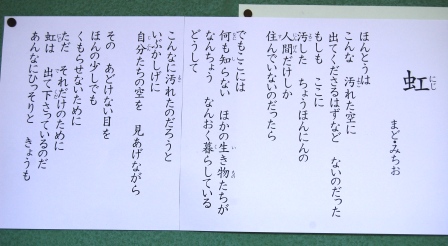 虹
にじ
まど・みちお
ほんとうは
こんな 汚れた空に
出てくださるはずなど ないのだった
もしも ここに
汚した ちょうほんにんの
人間だけしか
住んでいないのだったら
でもここには
何も知らない ほかの生き物たちが
なんちょう なんおく暮らしている
どうして
こんなに汚れたのだろうと
いぶかしげに
自分たちの空を 見あげながら
その あどけない目を
ほんの少しでも
くもらせないために
ただ それだけのために
虹は 出て下さっているのだ
あんなにひっそりと きょうも